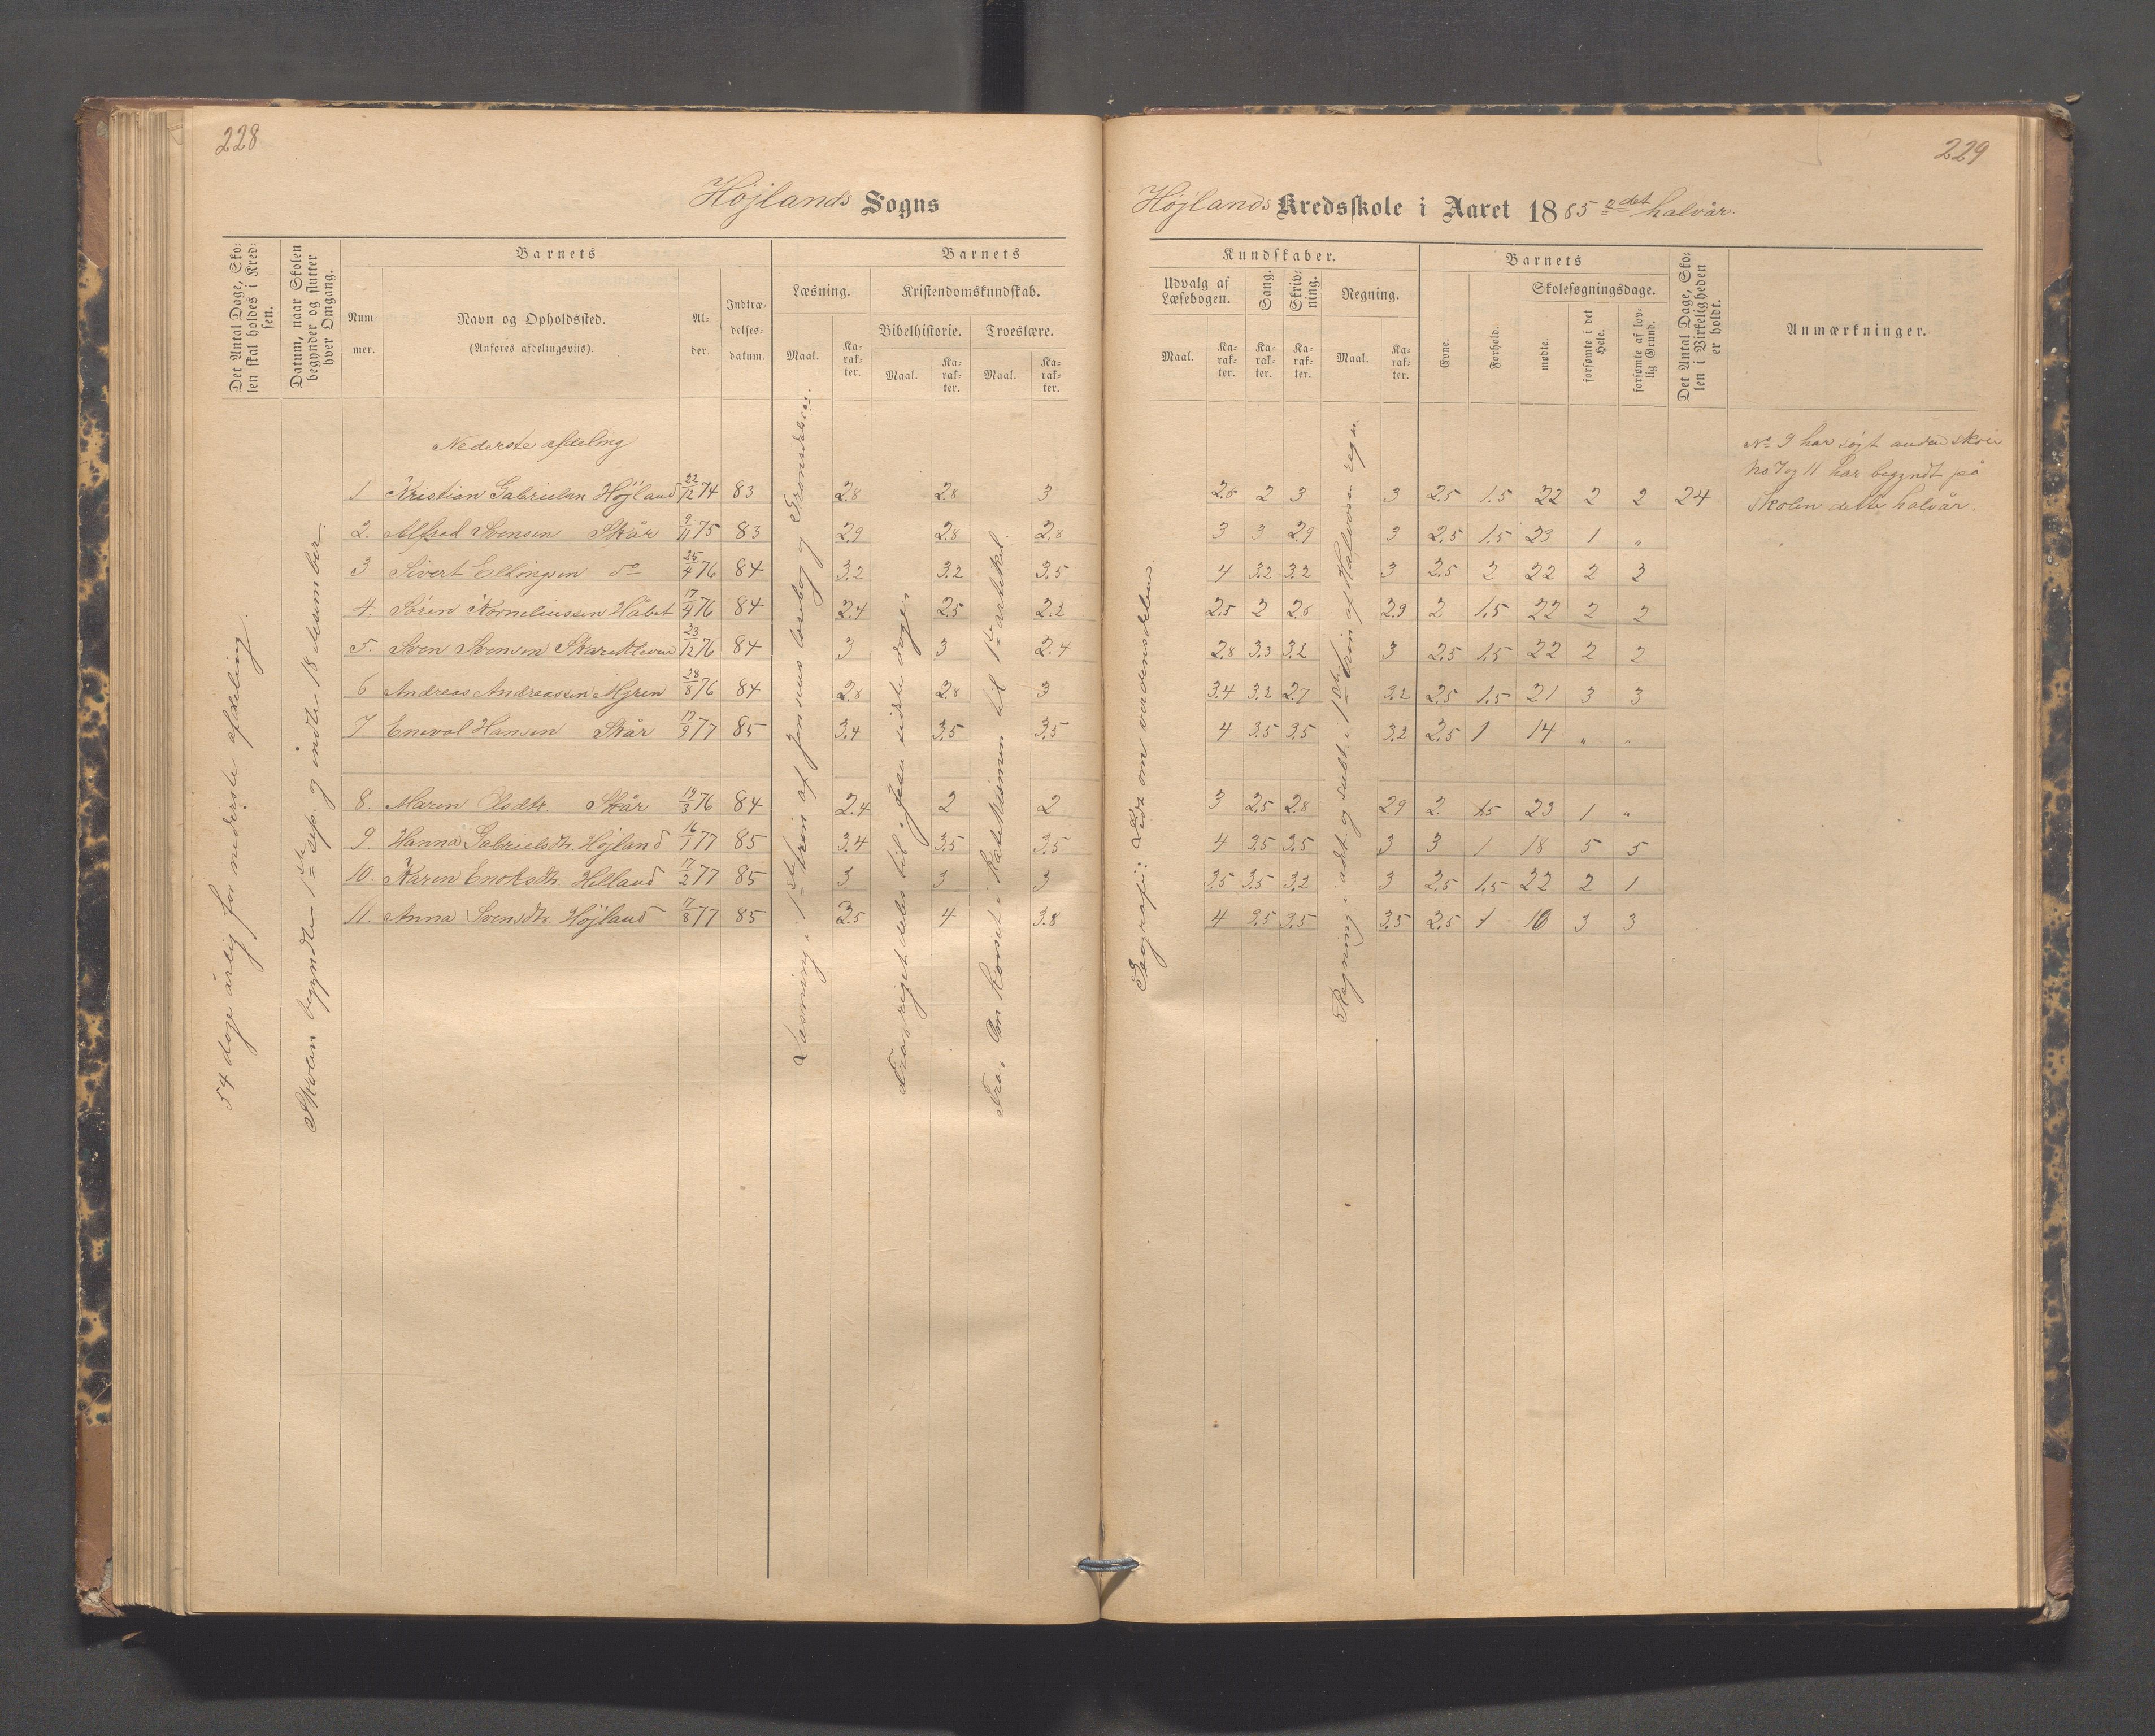 228
Højlands Sogns
Det Antal Dage, Sko-
len skal holdes i Kred-
sen.
Datum, naar Skolen
begynder og slutter
hver Omgang.
Barnets
Barnets
Num-
mer.
Navn og Opholdssted.
(Anføres afdelingsviis).
Al-
der.
Indtræ-
delses-
datum.
Læsning.
Kristendomskundskab.
Bibelhistorie.
Troeslære.
Maal.
Ka-
rak-
ter.
Maal.
Ka-
rak-
ter.
Maal.
Ka-
rak-
ter.
54 dage årlig for nederste afdeling.
Skolen begyndte 1ste sep. og endte 18 desember.
Læsning i 1ste trin af Jensens læsebog og
Fra rigets deles til Jesu sidste dage
Fra, Om kornet i katekismen til 1ste artikel.
Nederste afdeling
1 Kristian Gabrielsen Højland 22/12 74 83 2.8 2.8 3
2. Alfred Svensen Skår 9/11 75 83 2.9 2.8 2.8
3 Sivert Ellingsen do 25/4 76 84 3.2 3.2 3.5
4. Søren Korneliussen Håbet 17/4 76 84 2.4 2.5 2.2
5. Sven Svensen Skarekleven 23/12 76 84 3 3 2.4
6 Andreas Andreassen Myren 28/8 76 84 2.8 2.8 3
7 Enevol Hansen Skår 17/9 77 85 3.4 3.5 3.5
8. Maren Olsdtr. Skår 19/3 76 84 2.4 2 2
9. Hanna Gabrielsdtr. Højland 16/1 77 85 3.4 3.5 3.5
10. Karen Enoksdtr. Helland 17/2 77 85 3 3 3
11. Anna Svensdtr. Højland 17/8 77 85 3.5 4 3.8
229
Højlands Kredsskole i Aaret 1885 2det halvår.
Kundskaber.
Barnets
Udvalg af
Læsebogen.
Sang.
Skriv-
ning.
Regning.
Maal.
Ka-
rak-
ter.
Ka-
rak-
ter.
Ka-
rak-
ter.
Maal.
Ka-
rak-
ter.
Evne.
Forhold.
Skolesøgningsdage.
mødte.
forsømte i det
Hele.
forsømte af lov-
lig Grund.
Det Antal Dage, Sko-
len i Virkeligheden
er holdt.
Anmærkninger.
Geografi: Lidt om verdensdelene.
Regning i adt. og subt. i 1ste trin af Halvorsen regn.
No 9 har søgt anden skole
No 7 og 11 har begyndt på
Skolen dette halvår.
2.6 2 3 3 2.5 1.5 22 2 2 24
3 3 2.9 3 2.5 1.5 23 1 "
4 3.2 3.2 3 2.5 2 22 2 2
2.5 2 2.6 2.9 2 1.5 22 2 2
2.8 3.3 3.2 3 2.5 1.5 22 2 2
3.4 3.2 2.7 3.2 2.5 1.5 21 3 3
4 3.5 3.5 3.2 2.5 1 14 " "
3 2.5 2.8 2.9 2 1.5 23 1 "
4 3.5 3.5 3 3 1 18 5 5
3.5 3.5 3.2 3 2.5 1.5 22 2 1
4 3.5 3.5 3.5 2.5 1 16 3 3